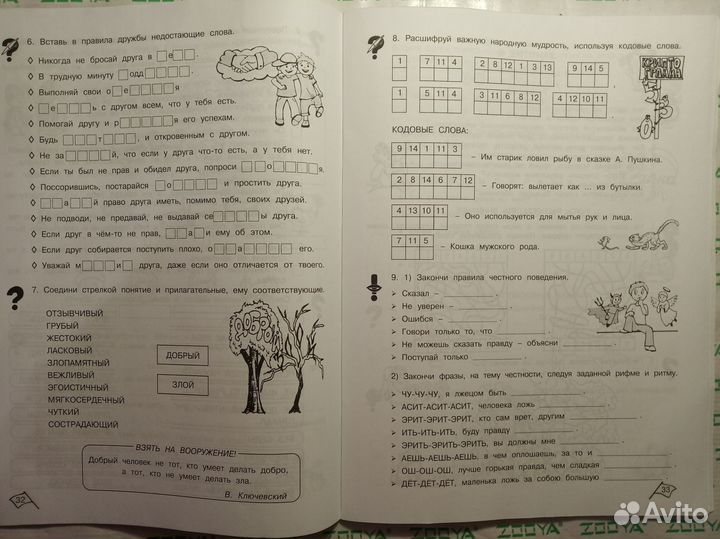 6. Вставь в правила дружбы недостающие слова.
◊ Никогда не бросай друга в □е□□.
◊ В трудную минуту □одд□□□□.
◊ Выполняй свои о□е□□□□я
◊ □е□□□ь с другом всем, что у тебя есть.
◊ Помогай другу и р□□□□□□я его успехам.
◊ Будь □□□т□□□, и откровенным с другом.
◊ Не за□□□□й, что если у друга что-то есть, а у тебя нет.
◊ Если ты был не прав и обидел друга, попроси □□о□□□□я.
◊ Поссорившись, постарайся □о□□□□□□ и простить друга.
◊ □□а□□й право друга иметь, помимо тебя, своих друзей.
◊ Не подводи, не предавай, не выдавай се□□□□ы друга.
◊ Если друг в чём-то не прав, □□а□и ему об этом.
◊ Если друг собирается поступить плохо, о□□а□□□□□ его.
◊ Уважай м□□□и□ друга, даже если оно отличается от твоего.
7. Соедини стрелкой понятие и прилагательные, ему соответствующие.
ОТЗЫВЧИВЫЙ
ГРУБЫЙ
ЖЕСТОКИЙ
ЛАСКОВЫЙ
ЗЛОПАМЯТНЫЙ
ВЕЖЛИВЫЙ
ЭГОИСТИЧНЫЙ
МЯГКОСЕРДЕЧНЫЙ
ЧУТКИЙ
СОСТРАДАЮЩИЙ
ДОБРЫЙ
ЗЛОЙ
ВЗЯТЬ НА ВООРУЖЕНИЕ!
Добрый человек не тот, кто умеет делать добро,
а тот, кто не умеет делать зла.
В. Ключевский
32
8. Расшифруй важную народную мудрость, используя кодовые слова.
1 7 11 4 2 8 12 1 3 13 9 14 5
1 5 11 4 3 11 8 12 4 12 10 11
КРИПТО
ГРАММА
КОДОВЫЕ СЛОВА:
9 14 1 11 3 – Им старик ловил рыбу в сказке А. Пушкина.
2 8 14 6 7 12 – Говорят: вылетает как ... из бутылки.
4 13 10 11 – Оно используется для мытья рук и лица.
7 11 5 – Кошка мужского рода.
9. 1) Закончи правила честного поведения.
➤ Сказал – ________.
➤ Не уверен – ________.
➤ Ошибся – ________.
➤ Говори только то, что ________.
➤ Не можешь сказать правду – объясни ________.
➤ Поступай только ________.
2) Закончи фразы, на тему честности, следуя заданной рифме и ритму.
➤ ЧУ-ЧУ-ЧУ, я лжецом быть ________.
➤ АСИТ-АСИТ-АСИТ, человека ложь ________.
➤ ЭРИТ-ЭРИТ-ЭРИТ, кто сам врет, другим ________.
➤ ИТЬ-ИТЬ-ИТЬ, буду правду ________.
➤ ЭРИТЬ-ЭРИТЬ-ЭРИТЬ, вы должны мне ________.
➤ АЕШЬ-АЕШЬ-АЕШЬ, в чем оплошаешь, за то и ________.
➤ ОШ-ОШ-ОШ, лучше горькая правда, чем сладкая ________.
➤ ДЁТ-ДЁТ-ДЁТ, маленька ложь за собою большую ________.
33
Avito